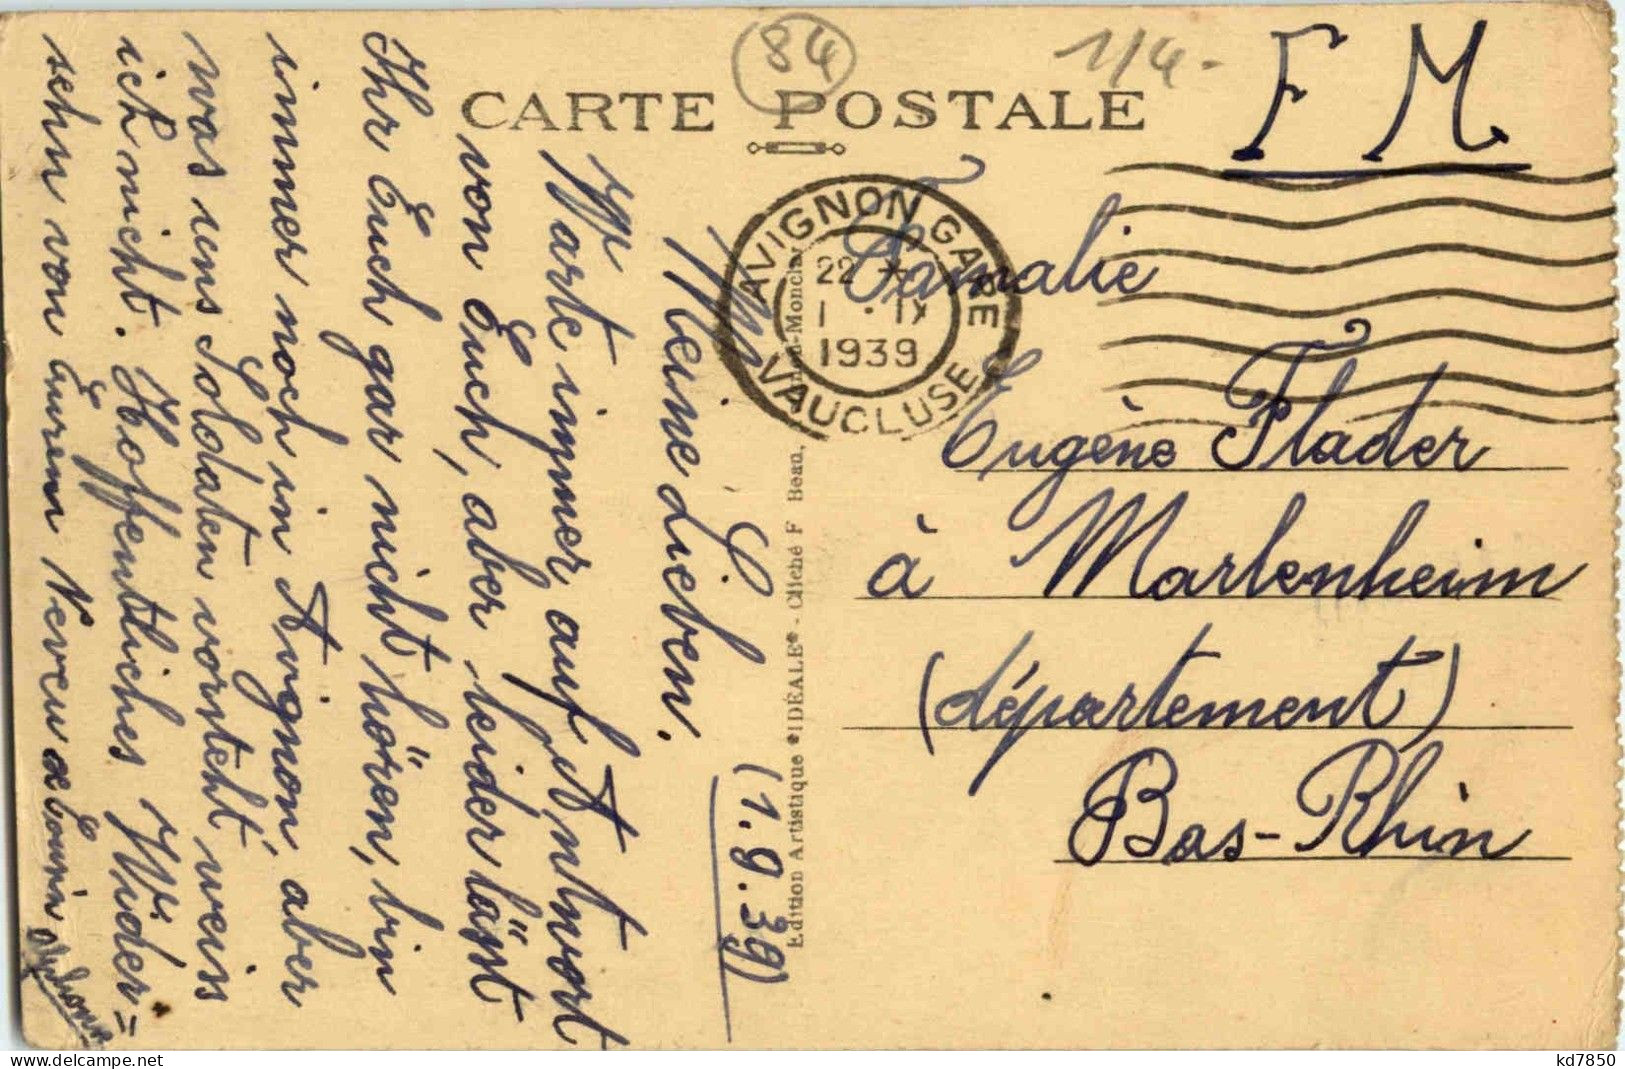 84
1/4.-
F M
CARTE POSTALE
AVIGNON GARE
22 *
1 . IX
1939
VAUCLUSE
Edition Artistique "IDÉALE" - Cliché F Beau,
Famalie
Eugène Flader
à Marlenheim
(département)
Bas-Rhin
(1.9.39)
Meine Lieben.
Warte immer auf Antwort
von Euch, aber leider läst
Ihr Euch gar nicht hören, bin
immer noch in Avignon, aber
was uns Soldaten vorsteht weis
ich nicht. Hoffentliches Wider=
sehn von Eurem Neveu & Cousin
kd7850